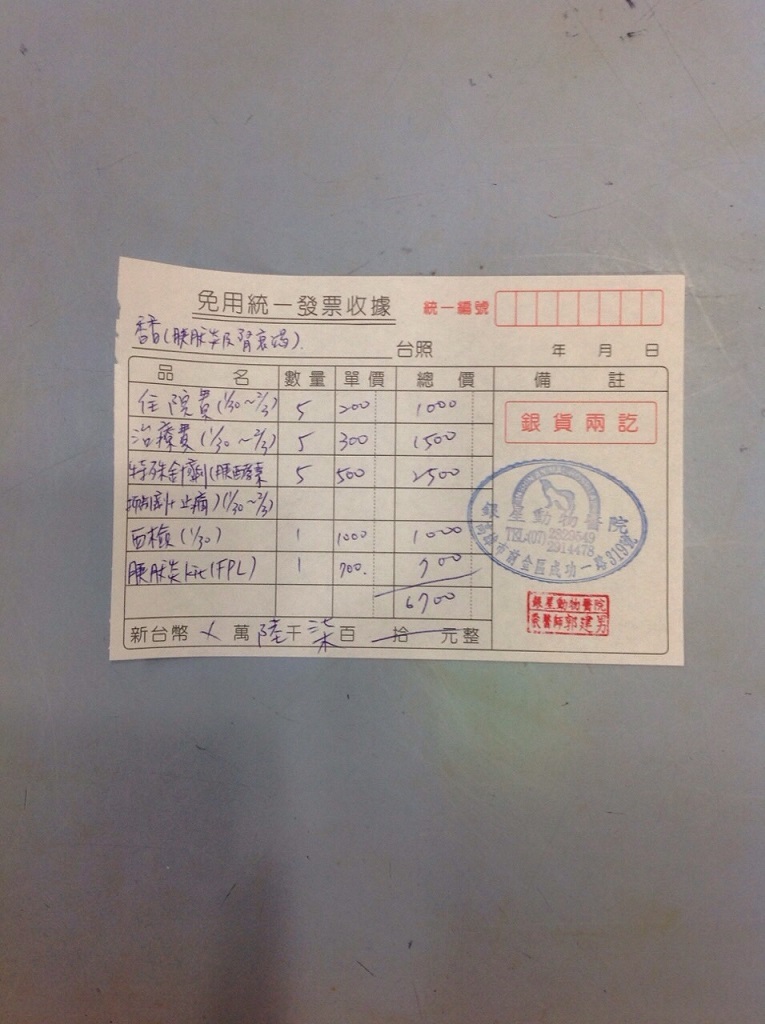 免用統一發票收據
統一編號
香香(胰臟炎及腎衰竭)
台照 年 月 日
品 名 數量 單價 總 價 備 註
住院費(1/30~2/3) 5 200 1000
銀貨兩訖
治療費(1/30~2/3) 5 300 1500
特殊針劑(胰酶素 5 500 2500
抑制劑+止痛)(1/30~2/3)
銀星動物醫院
TEL(07)2929549
2914478
高雄市前金區成功一路319號
血檢(1/30) 1 1000 1000
胰臟炎kit(FPL) 1 700. 700
6700
銀星動物醫院
獸醫師郭建男
新台幣 萬陸千柒百 拾 元整